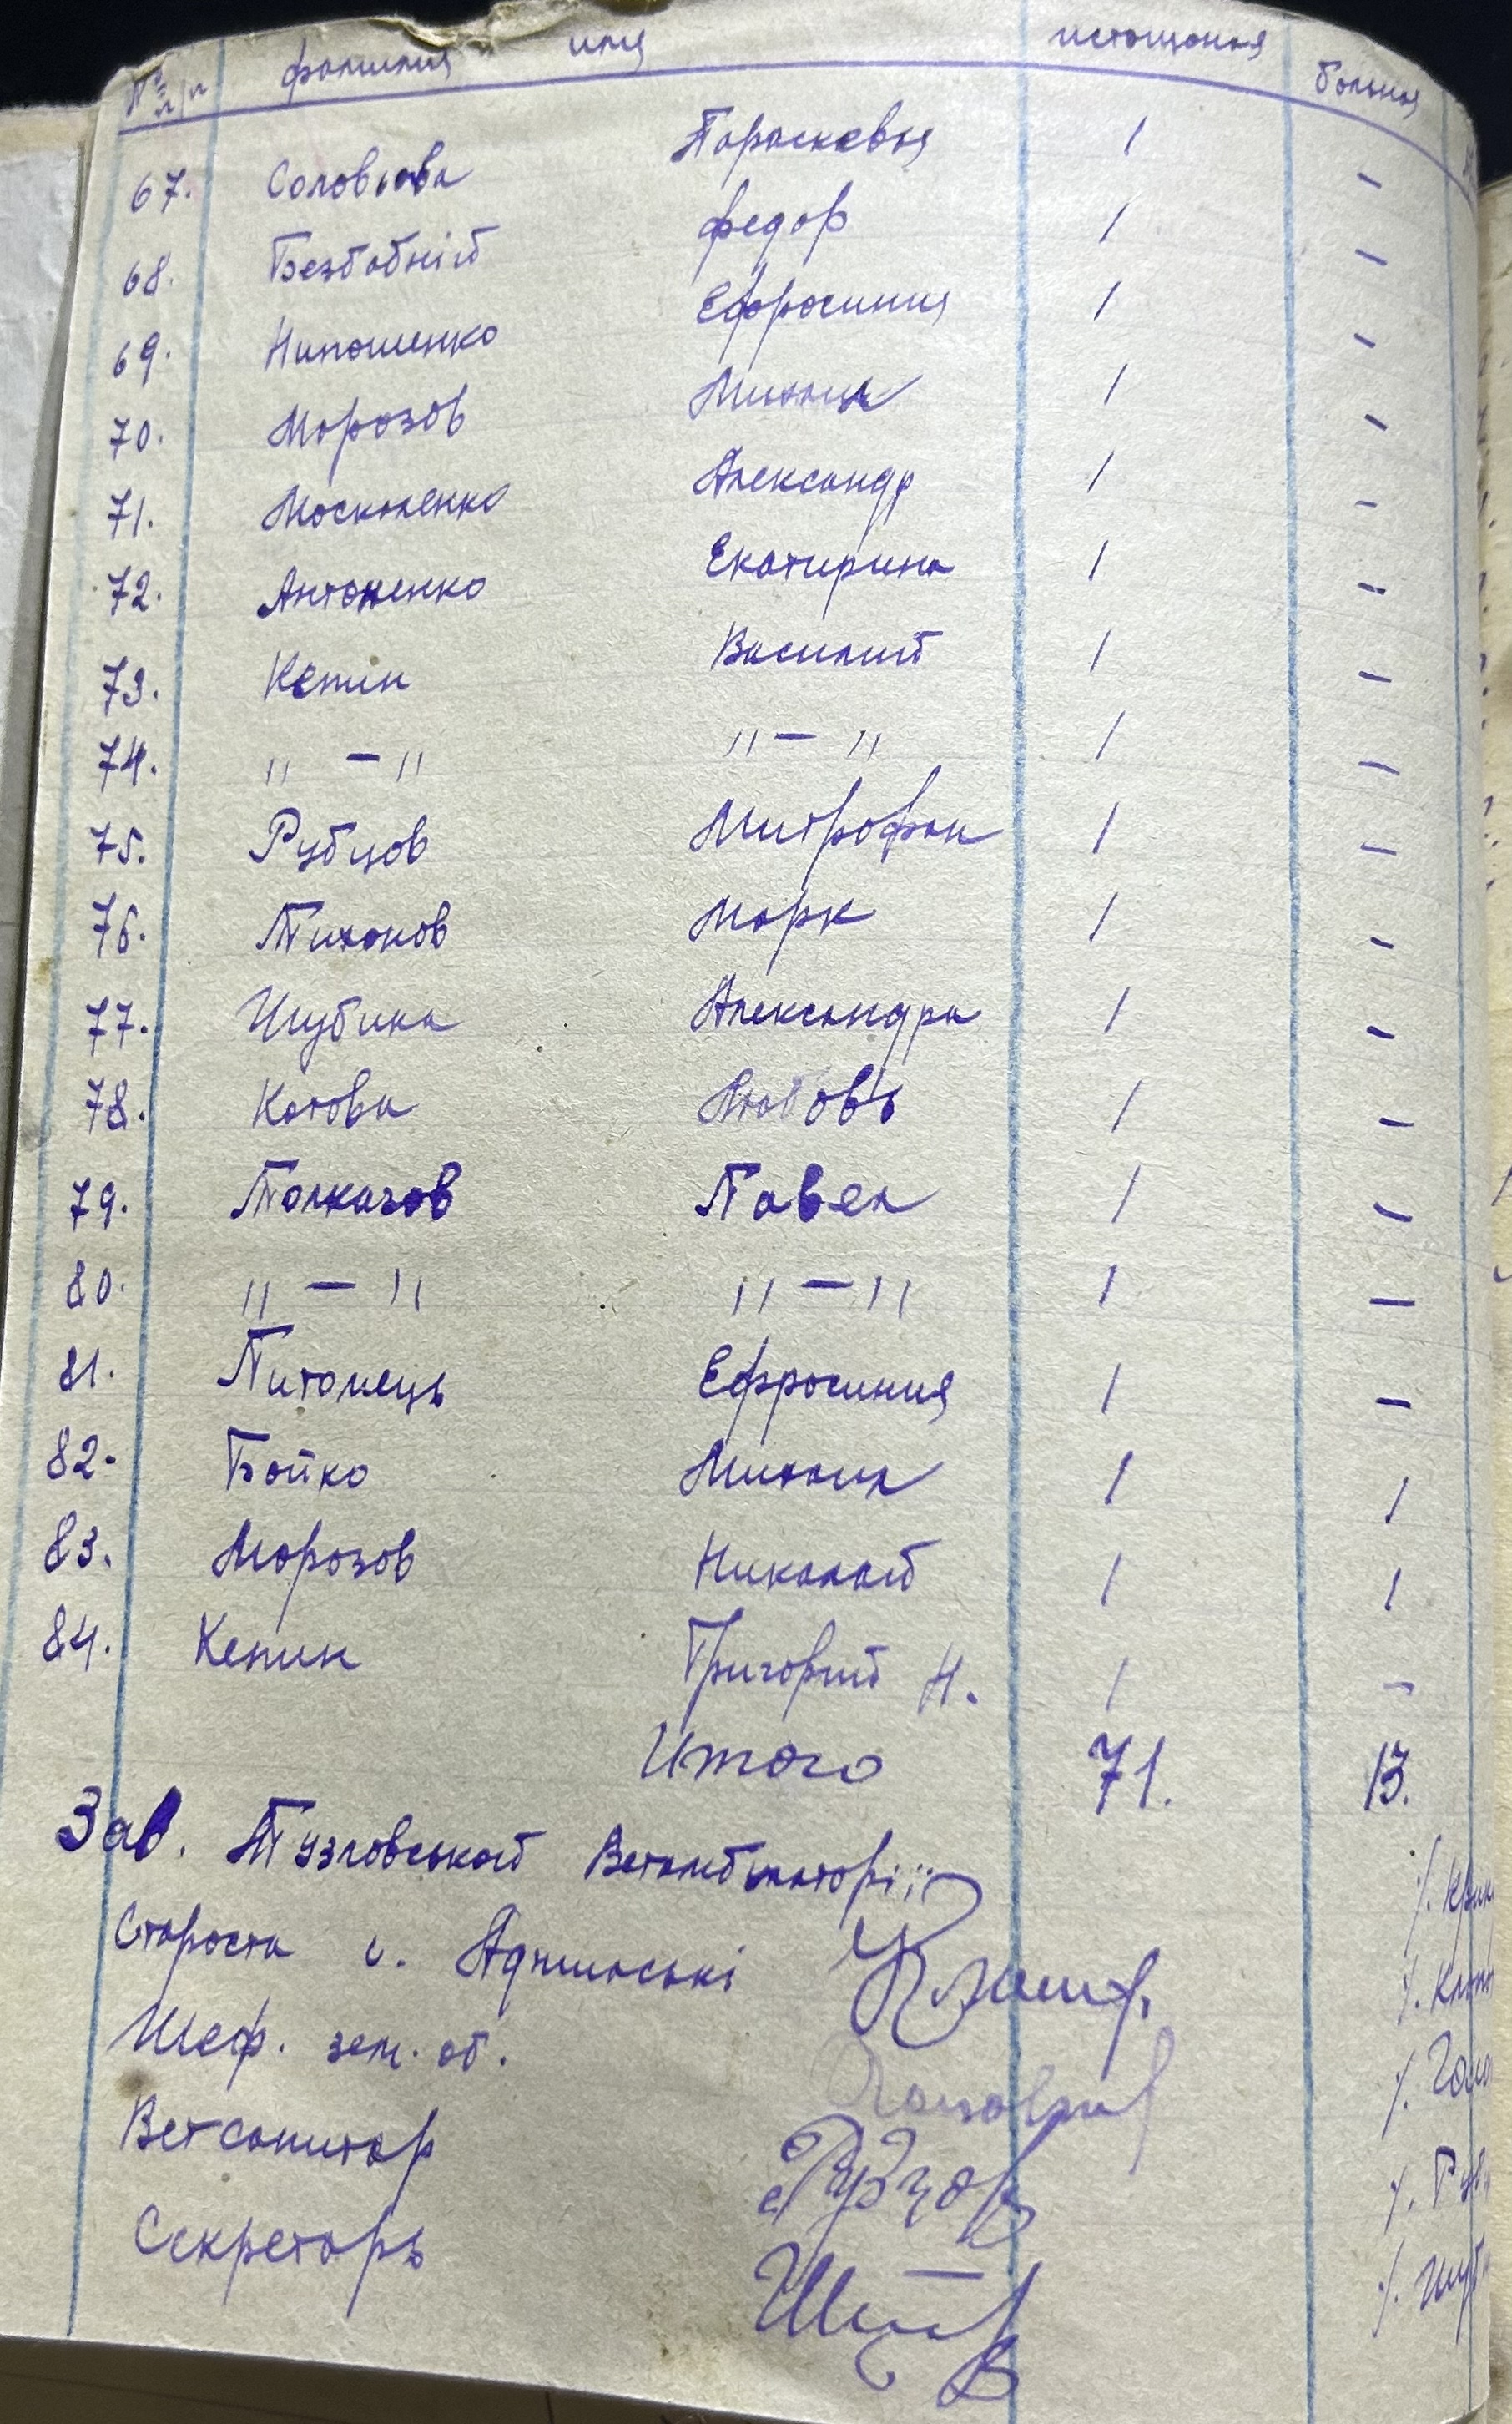 № п/п фамилия имя истощеная больная
67. Соловьова Параскевья / –
68. Безбабній Федор / –
69. Нипошенко Ефросиния / –
70. Морозов Михаил / –
71. Москаленко Александр / –
72. Антоненко Екатирина / –
73. Кепин Василий / –
74. „ – „ „ – „ / –
75. Рубцов Митрофан / –
76. Тихонов Марк / –
77. Шубина Александра / –
78. Котова Любовь / –
79. Толкачов Павел / –
80. „ – „ „ – „ / –
81. Питомець Ефросиния / –
82. Бойко Михаил / /
83. Морозов Николай / /
84. Кепин Григорий Н. / –
Итого 71. 13.
Зав. Тузловськой Ветамбулаторіі
Староста с. Аджиаські
Шеф. зем. об.
Ветсанитар Рубцов
Секретарь